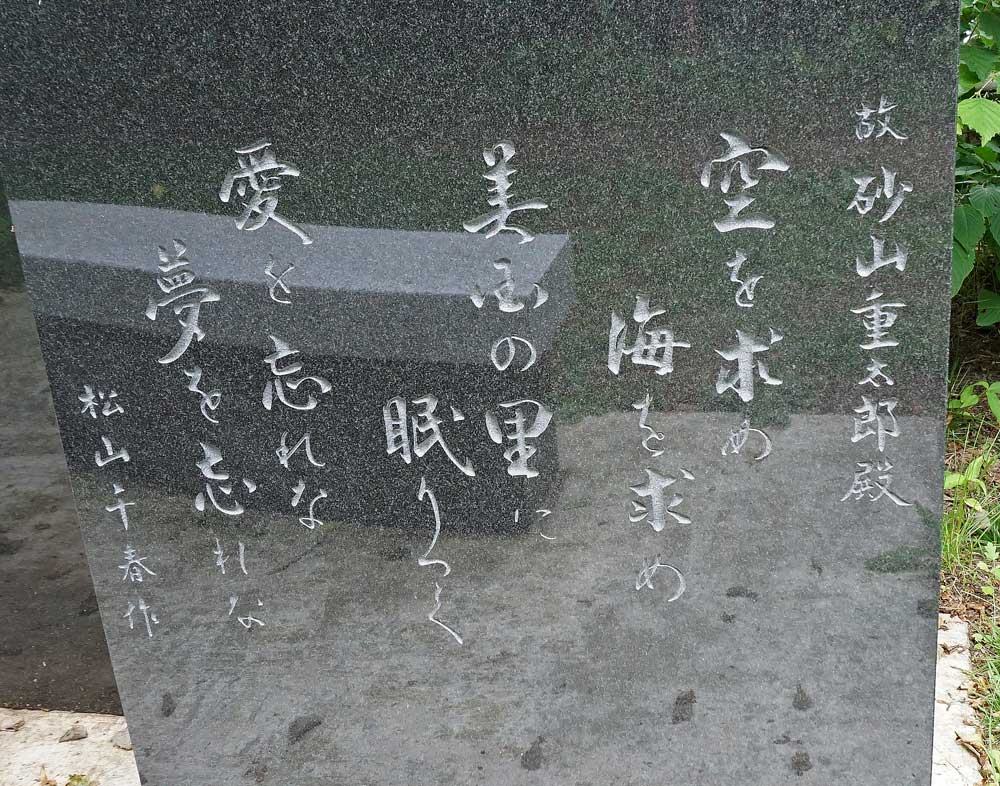 故砂山重太郎殿
空を求め
海を求め
美国の里に
眠りつく
愛を忘れな
夢を忘れな
松山千春作